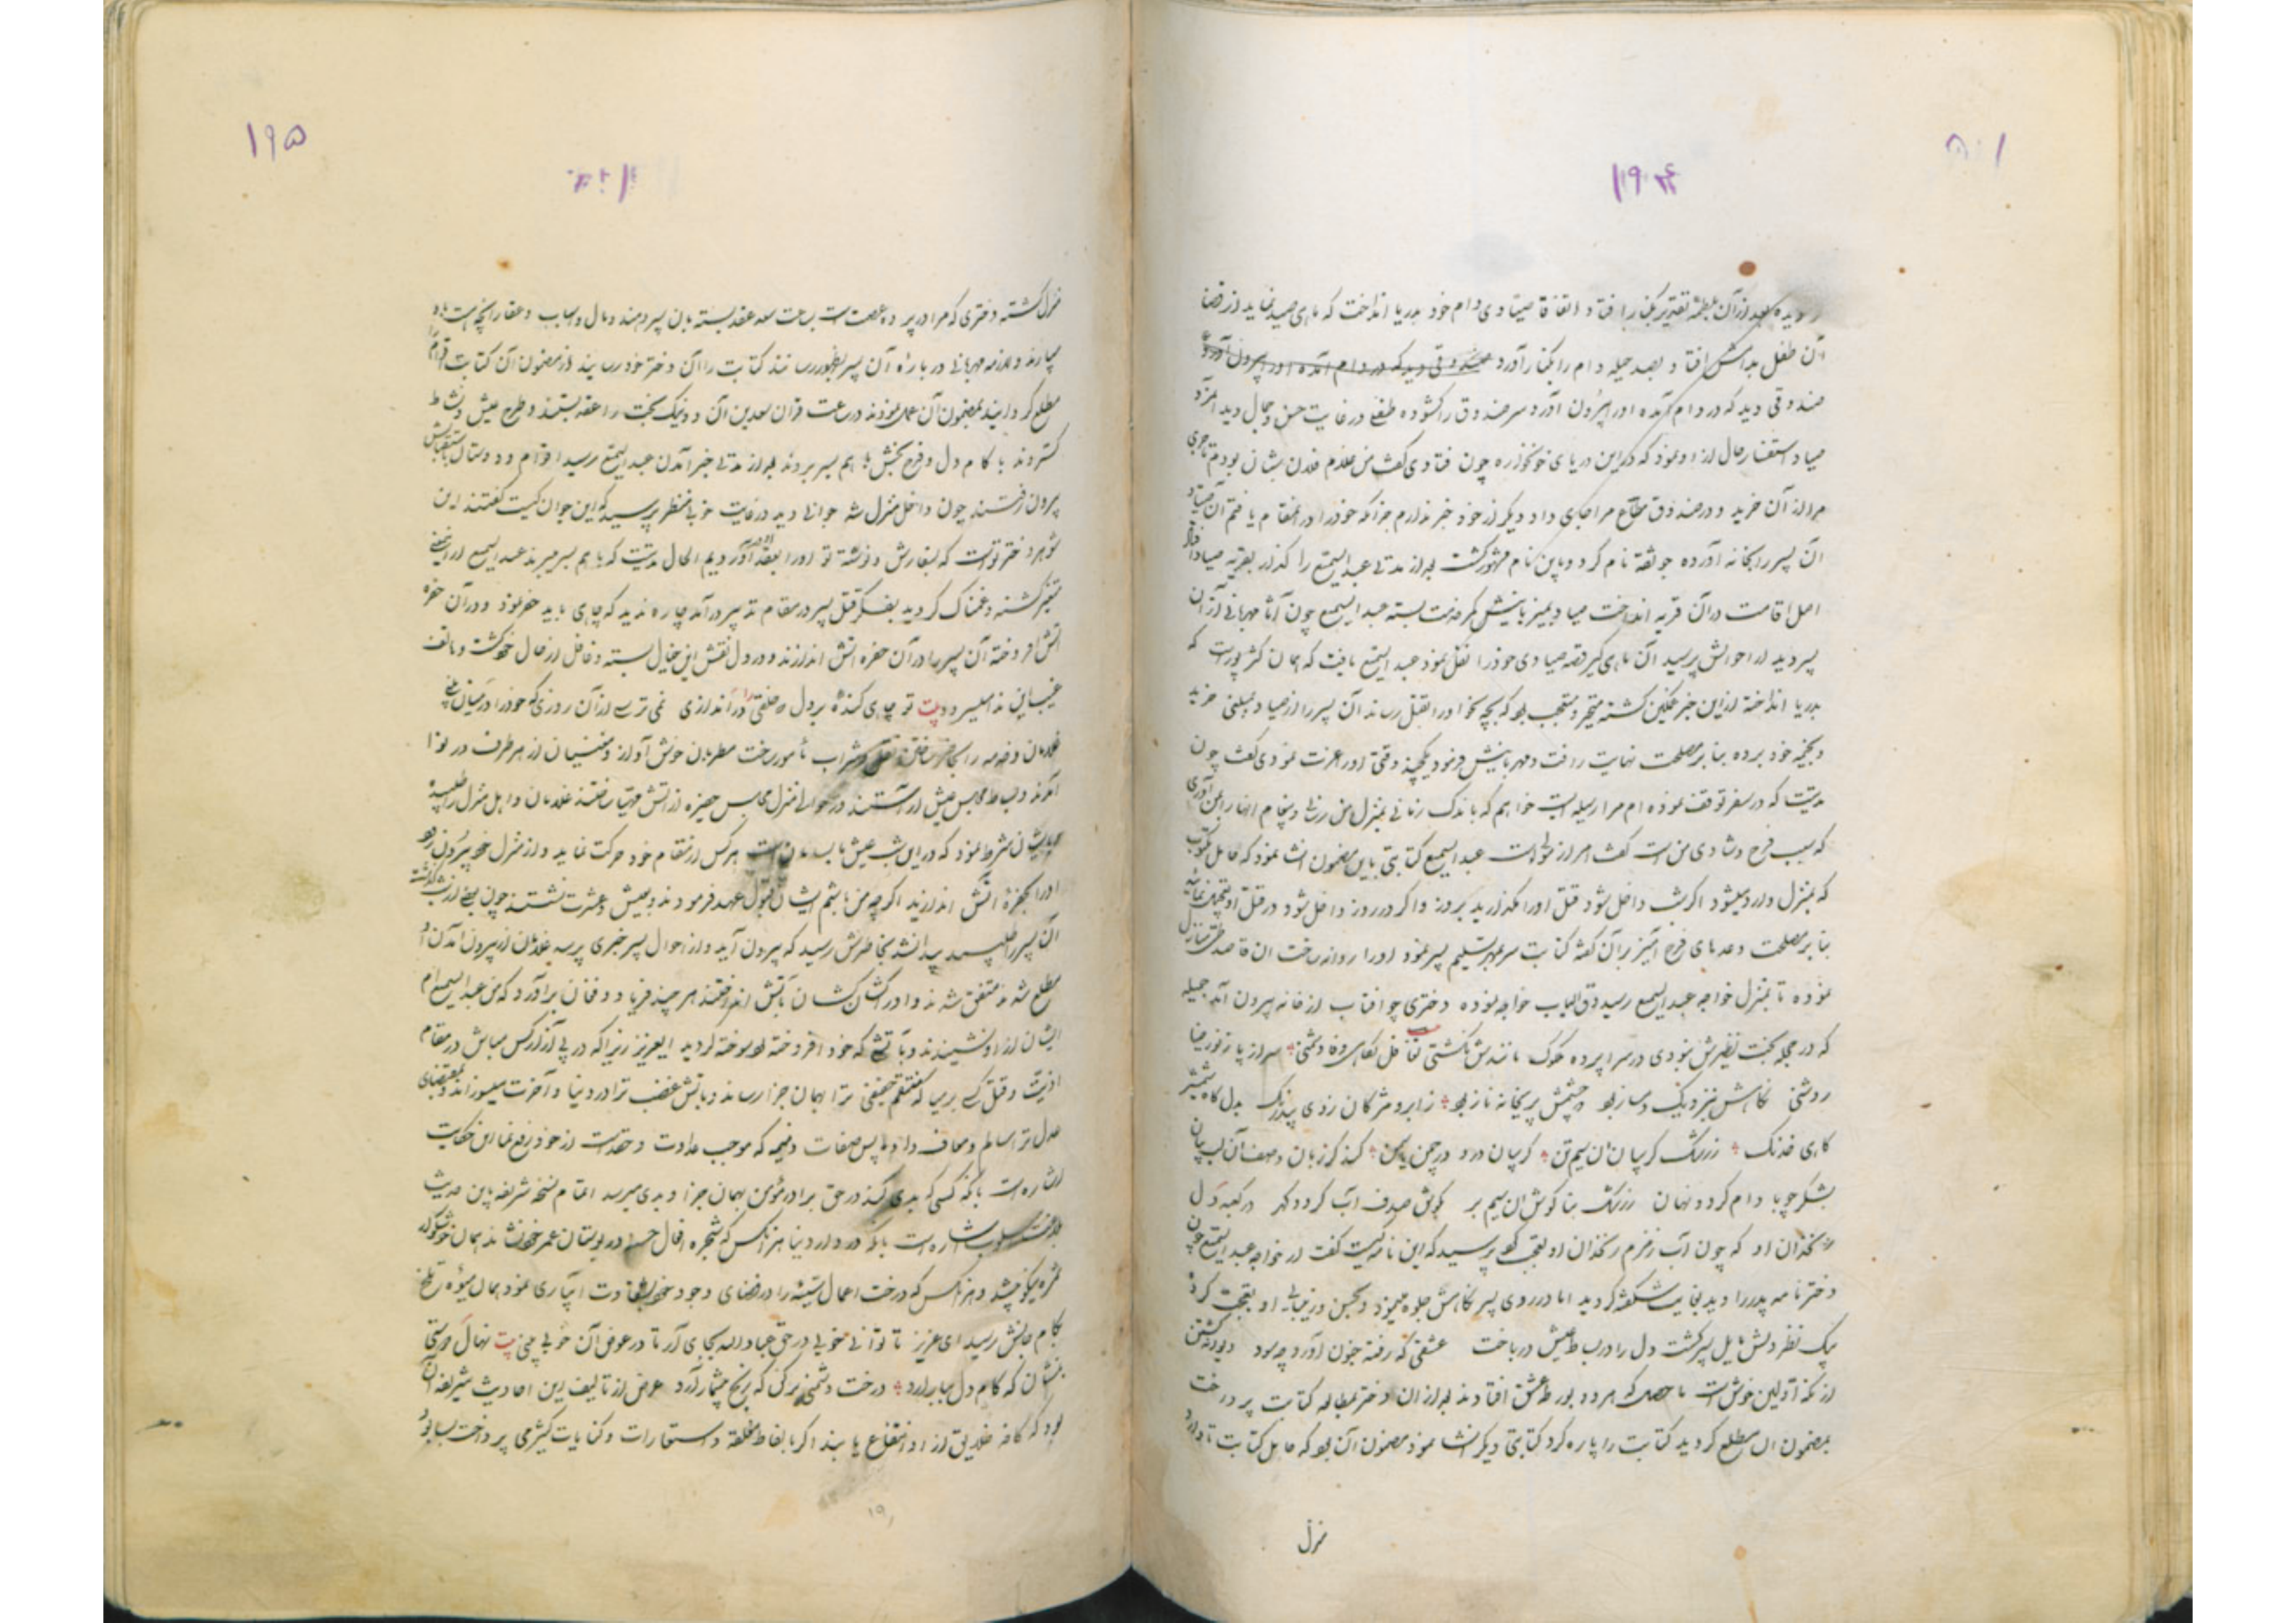 ۱۹۴
دیده بعد از آن بلطمه تقدیر بکنار افتاد اتفاقا صیادی دام خود بدریا انداخت که ماهی صید نماید از قضا
آن طفل بدامش افتاد بصد حیله دام را بکنار آورد صندوقی دید که در دام آمده او را بیرون آورد
صندوقی دید که در دام آمده او را بیرون آورد سر صندوق را کشوده طفلی در غایت حسن و جمال دید
صیاد استفسار حال از او نمود که در این دریای خونخواره چون فتادی کفت من غلام فلان بشان بودم تاجری
مرا از آن خرید و در صندوق متاع مرا جای داد دیکر از خود خبر ندارم جز آنکه خود را در این مقام یافتم آن صیاد
آن پسر را بخانه آورده نام کرد و باین نام مشهور کشت بعد از مدتی عبدالسمیع را کذار بقریه صیاد افتاد
اقامت در آن قریه انداخت صیاد بمیزبانیش کمر خدمت بسته عبدالسمیع چون آثار مهربانی از آن
پسر دید از احوالش پرسید آن ماهی کیر قصه صیادی خود را نقل نمود عبدالسمیع یافت که همان است که
بدریا انداخته از این خبر غمکین کشته متحیر و متعجب بود که بچه نحو او را بقتل رساند آن پسر را از صیاد بمبلغی خرید
و بخیمه خود برده بنا بر مصلحت نهایت رافت و مهربانیش فرمود وقتی او را عزت نمودی کفت چون
مدتیست که در سفر توقف نموده ام مرا وسیله است خواهم که باندک زمانی بمنزل من رفته و پیغام
که سبب فرح و شادی من است کفت امر از مولی است عبدالسمیع کتابتی باین مضمون انشا نمود که حامل مکتوب
که بمنزل وارد میشود اکر شب داخل شود قتل او را مکذارید بروز و اکر در روز داخل شود در قتل او تعجیل نمائید
بنا بر مصلحت وعده های فرح آمیز بر آن کفته کتابت سر بمهر تسلیم پسر نمود او را روانه ساخت آن قاصد طی منازل
نموده تا بمنزل خواجه عبدالسمیع رسید دق الباب خواجه نموده دختری چو افتاب از خانه بیرون آمد جمیله
که در حجله بخت نظیرش نبودی در سراپرده ملوک مانندش
روشنی نکاهش بنزدیک دمساز بود چشمش پریخانه ناز بود ز ابرو و مژکان زدی بیدرنک بدل کاه شمشیر
کاهی خدنک ز رشک کریبان آن سیم تن کریبان درد در چمن یاسمن کند کر زبان وصف آن لب بیان
بشکر چو بادام کردد نهان ز رشک بناکوش آن سیم بر بکوش صدف آب کردد کهر در کعبه دل
زنخدان او که چون آب زمزم زنخدان او پرسید که این نامه کیست کفت از خواجه عبدالسمیع چون
دختر نامه پدر را دید بغایت شکفته کردید اما در روی پسر نکاهش جلوه مینمود و بحسن و زیبائی او تعجب کرد
بیک نظر دلش مایل پسر کشت دل را در بساط عیش درباخت عشقی که رفته جنون آورد چه سود دیوانه کشتن
از نکه اولین خوش است ما حصل که هر دو بورطه عشق افتادند بعد از آن دختر بمطالعه کتابت پرداخت
بمضمون آن مطلع کردید کتابت را پاره کرد کتابتی دیکر انشا نمود مضمون آن بود که حامل کتابت تا وارد
منزل
۱۹۵
منزل کشته دختری که مرا در پرده عصمت است بساعت سعد عقد بسته بآن پسر دهند و مال و اسباب و عقار آنچه است باو
سپارند و لازمه مهربانی درباره آن پسر بظهور رسانند کتابت را آن دختر خود رسانید از مضمون آن کتابت اقوام را
مطلع کردانید بمضمون آن عمل نمودند در ساعت قران سعدین آن دو نیک بخت را عقد بستند و طرح عیش و نشاط
کستردند با کام دل و فرح بخش با هم بسر بردند بعد از مدتی خبر آمدن عبدالسمیع رسید اقوام و دوستان باستقبالش
بیرون رفتند چون داخل منزل شد جوانی دید در غایت خوبی منظر پرسید که این جوان کیست کفتند این
شوهر دختر توست که بسفارش و نوشته تو او را بعقد او در آوردیم الحال مدتیست که با هم بسر میبرند عبدالسمیع از این معنی
متغیر کشته و غمناک کردید بفکر قتل پسر در مقام تدبیر درآمد چاره ندید که چاهی باید حفر نمود و در آن حفره
آتش افروخته آن پسر را در آن حفره آتش اندازند و در دل نقش این خیال بسته و غافل از حال خود کشت و هاتف
غیب این ندا میسرود بیت تو چاهی کنده بر دل خلقی را در آن اندازی نمی ترسی از آن روزی که خود را در میان بینی
غلامان و خدمه را بحاضر ساختن نقل و شراب مأمور ساخت مطربان خوش آواز و مغنیان از هر طرف در نوا
آمدند و بساط مجلس عیش آراستند در حوالی منزل مجلس حفره از آتش مهیا ساختند غلامان و اهل منزل را طلبیده
با ایشان شرط نمود که در این شب عیش ما بسامان است هر کس از مقام خود حرکت نماید و از منزل خود بیرون رود
او را بحفره آتش اندازید اکرچه من باشم ایشان قبول عهد فرمودند بعیش و عشرت نشستند چون بعضی از شب کذشت
آن پسر را طلبید پیدا نشد بخاطرش رسید که بیرون آید و از احوال پسر خبری پرسد غلامان از بیرون آمدن او
مطلع شدند متفق شدند و او را کشان کشان بآتش انداختند هر چند فریاد و فغان برآورد که من عبدالسمیع ام
ایشان از او نشنیدند و بآتشی که خود افروخته بود سوخته کردید ایعزیز زیرا که در پی آزار کس مباش در مقام
اذیت و قتل کسی برمیا که منتقم حقیقی ترا بهمان جزا رساند و بآتش غضب ترا در دنیا و آخرت میسوزاند و بمقتضای
عدل ترا سالم و معاف دارد پس صفات ذمیمه که موجب عداوت و حقد است از خود رفع نما این حکایت
اشاره است بآنکه کسی که بدی کند در حق برادر مؤمن بهمان جزا و بدی میرسد اتمام نسخه شریفه باین حدیث
اشاره است بآنکه در دار دنیا هر آنکس که شجره افعال حسنه در بوستان عمر خود نشاند همان
ثمره نیکو چشد و هر آنکس که درخت اعمال سیئه را در فضای وجود خود آبیاری نمود همان میوه تلخ
بکام جانش رسید ای عزیز تا توانی خوبی در حق عباد الله بجای آر تا در عوض آن خوبی بینی بیت نهال دوستی
بنشان که کام دل ببار آرد درخت دشمنی برکن که رنج بیشمار آرد غرض از تألیف این احادیث شریفه آن
بود که کافه خلایق از او انتفاع یابند اکر بالفاظ مغلقه و استعارات و کنایات کثیره می پرداخت بسا بود